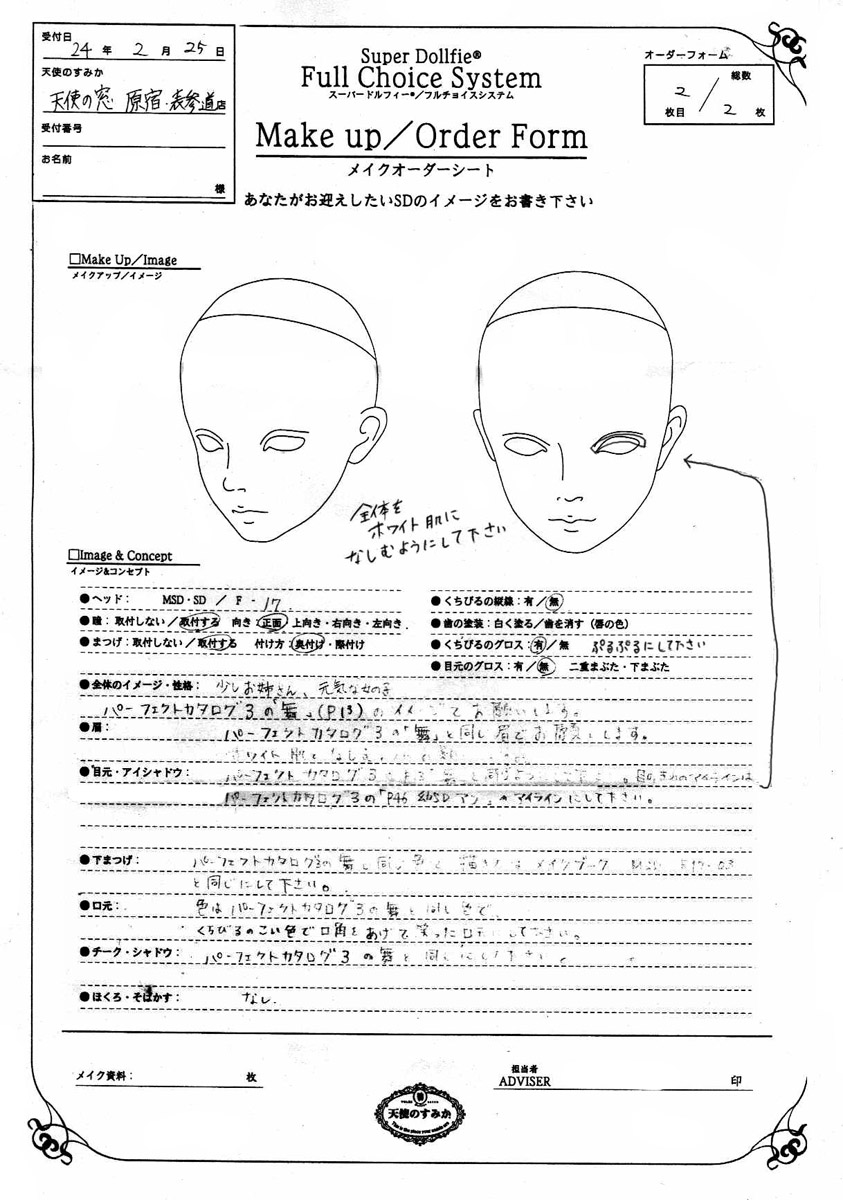 受付日
24年 2月 25日
天使のすみか
天使の窓 原宿・表参道店
受付番号
お名前
様
Super Dollfie®
Full Choice System
スーパードルフィー®/フルチョイスシステム
Make up/Order Form
メイクオーダーシート
あなたがお迎えしたいSDのイメージをお書き下さい
オーダーフォーム
総数
2/2
枚目 枚
□Make Up/Image
メイクアップ/イメージ
全体を
ホワイト肌に
なじむようにして下さい
□Image & Concept
イメージ&コンセプト
●ヘッド: MSD・SD / F - 17
●瞳:取付しない/取付する 向き:正面・上向き・右向き・左向き
●まつげ:取付しない/取付する 付け方:奥付け・際付け
●くちびるの縦線:有/無
●歯の塗装:白く塗る/歯を消す(唇の色)
●くちびるのグロス:有/無 ぷるぷるにして下さい
●目元のグロス:有/無 二重まぶた・下まぶた
●全体のイメージ・性格: 少しお姉さん、元気な女の子
パーフェクトカタログ3の「舞」(P13)のイメージでお願いします。
●眉: パーフェクトカタログ3の「舞」と同じ眉でお願いします。
ホワイト肌に
●目元・アイシャドウ: パーフェクトカタログ3の 舞と同じ
パーフェクトカタログ3の「P46 幼SDアン」のアイラインにして下さい。
●下まつげ: パーフェクトカタログ3の舞と同じ色で 描き方はメイクブック
と同じにして下さい。
●口元: 色はパーフェクトカタログ3の舞と同じ色で
くちびるのこい色で口角をあげて笑った口元にして下さい。
●チーク・シャドウ: パーフェクトカタログ3の舞と同じにして下さい。
●ほくろ・そばかす: なし.
メイク資料: 枚
担当者
ADVISER 印
天使のすみか